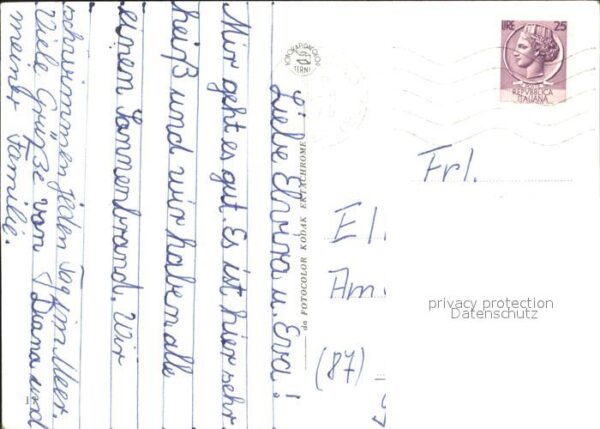 Liebe Elvira u. Eva!
Mir geht es gut. Es ist hier sehr
heiß und wir haben alle
einen Sonnenbrand. Wir
schwimmen jeden Tag im Meer.
Viele Grüße von Diana und
meiner Familie.
da FOTOCOLOR KODAK EKTACHROME
TERNI
LIRE 25
REPVBBLICA
ITALIANA
Frl.
El
Am
(87)
privacy protection
Datenschutz